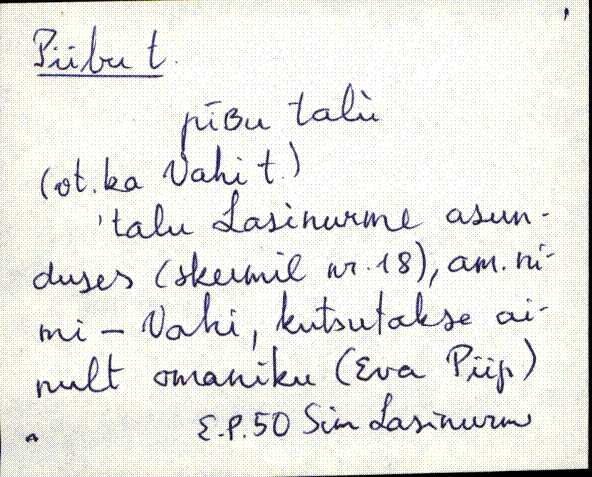 Piibu t.
pīʙu talù
(vt. ka Vahi t.)
'talu Lasinurme asun-
duses (skeemil nr. 18), am. ni-
mi – Vahi, kutsutakse ai-
nult omaniku (Eva Piip)
E.P. 50 Sim Lasinurm